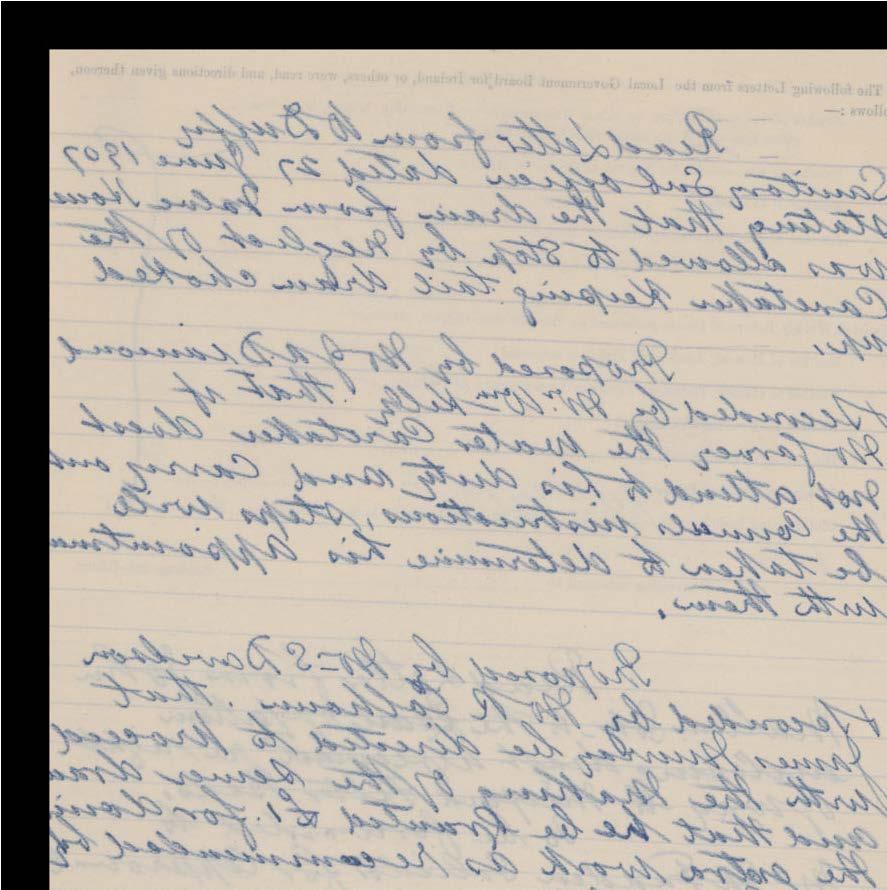 The following Letters from the Local Government Board for Ireland, or others, were read, and directions given thereon,
follows :—
Read Letter from Mr Duffy
Sanitary Sub officer dated 27 June 1907
stating that the drain from Valve House
was allowed to stop by neglect of the
Caretaker keeping tail drain choked
up.
Proposed by Mr J A Diamond
Seconded by Mr Wm Kelly that if
the water Caretaker does
not attend to his duty and carry out
the Councils instructions, steps will
be taken to determine his appointment
with them.
Proposed by Mr S Davidson
Seconded by Mr R Colhoun that
James be directed to proceed
with the making of the sewer drain
and that he be granted £1. for doing
the extra work as recommended by